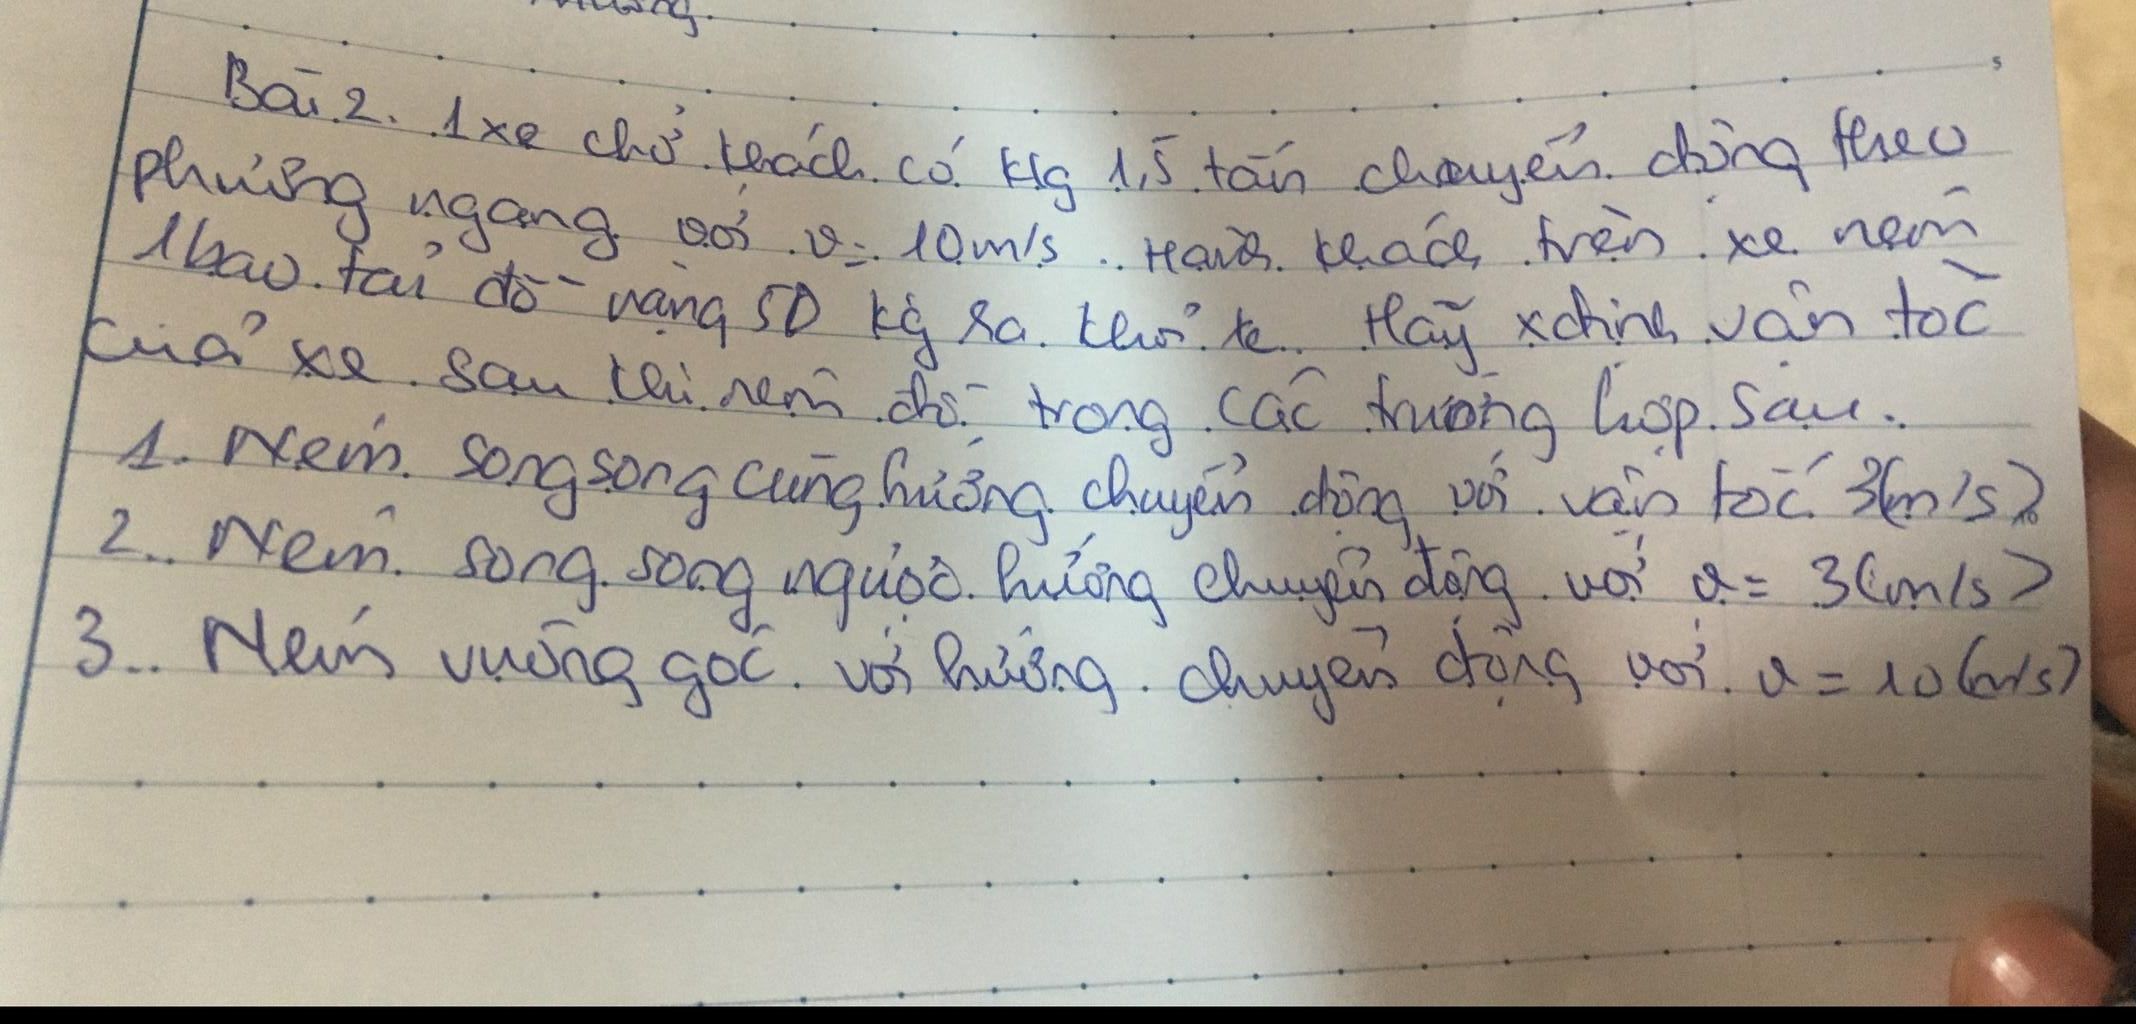 Bài 2. 1 xe chở khách có klg 1,5 tấn chuyển động theo
phương ngang với v = 10 m/s. Hành khách trên xe ném
1 bao tải đồ nặng 50 kg ra khỏi xe. Hãy xđịnh vận tốc
của xe sau khi ném đồ trong các trường hợp sau.
1. Ném song song cùng hướng chuyển động với vận tốc 3(m/s)
2. Ném song song ngược hướng chuyển động với v = 3(m/s)
3. Ném vuông góc với hướng chuyển động với v = 10(m/s)